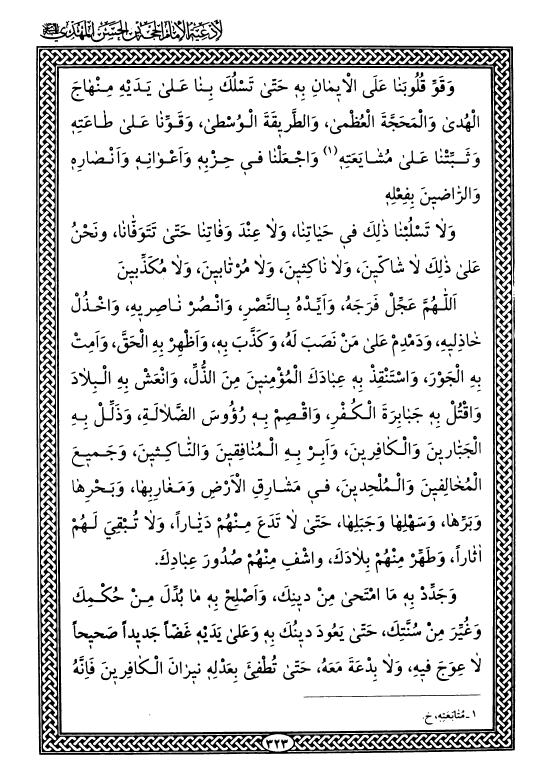 لأدعية الإمام الحجة بن الحسن المهدي
وَقَوِّ قُلُوبَنٰا عَلَى الْاِيمٰانِ بِهِ حَتّىٰ تَسْلُكَ بِنٰا عَلىٰ يَدَيْهِ مِنْهٰاجَ
الْهُدىٰ وَالْمَحَجَّةَ الْعُظْمىٰ، وَالطَّرِيقَةَ الْوُسْطىٰ، وَقَوِّنٰا عَلىٰ طٰاعَتِهِ
وَثَبِّتْنٰا عَلىٰ مُشٰايَعَتِهِ(١) وَاجْعَلْنٰا في حِزْبِهِ وَاَعْوٰانِهِ وَاَنْصٰارِهِ
وَالرّٰاضينَ بِفِعْلِهِ
وَلاٰ تَسْلُبْنٰا ذٰلِكَ في حَيٰاتِنٰا، وَلاٰ عِنْدَ وَفٰاتِنٰا حَتّىٰ تَتَوَفّٰانٰا، ونَحْنُ
عَلىٰ ذٰلِكَ لاٰ شٰاكّينَ، وَلاٰ نٰاكِثينَ، وَلاٰ مُرْتٰابينَ، وَلاٰ مُكَذِّبينَ
اَللّٰهُمَّ عَجِّلْ فَرَجَهُ، وَاَيِّدْهُ بِالنَّصْرِ، وَانْصُرْ نٰاصِريهِ، وَاخْذُلْ
خٰاذِليهِ، وَدَمْدِمْ عَلىٰ مَنْ نَصَبَ لَهُ، وَكَذَّبَ بِهِ، وَاَظْهِرْ بِهِ الْحَقَّ، وَاَمِتْ
بِهِ الْجَوْرَ، وَاسْتَنْقِذْ بِهِ عِبٰادَكَ الْمُؤْمِنينَ مِنَ الذُّلِّ، وَانْعَشْ بِهِ الْبِلاٰدَ
وَاقْتُلْ بِهِ جَبٰابِرَةَ الْكُفْرِ، وَاقْصِمْ بِهِ رُؤُوسَ الضَّلاٰلَةِ، وَذَلِّلْ بِهِ
الْجَبّٰارينَ وَالْكٰافِرينَ، وَاَبِرْ بِهِ الْمُنٰافِقينَ وَالنّٰاكِثينَ، وَجَميعَ
الْمُخٰالِفينَ وَالْمُلْحِدينَ، في مَشٰارِقِ الْاَرْضِ وَمَغٰارِبِهٰا، وَبَحْرِهٰا
وَبَرِّهٰا، وَسَهْلِهٰا وَجَبَلِهٰا، حَتّىٰ لاٰ تَدَعَ مِنْهُمْ دَيّٰاراً، وَلاٰ تُبْقِيَ لَهُمْ
اٰثٰاراً، وَطَهِّرْ مِنْهُمْ بِلاٰدَكَ، واشْفِ مِنْهُمْ صُدُورَ عِبٰادِكَ.
وَجَدِّدْ بِهِ مَا امْتَحىٰ مِنْ دينِكَ، وَاَصْلِحْ بِهِ مٰا بُدِّلَ مِنْ حُكْمِكَ
وَغُيِّرَ مِنْ سُنَّتِكَ، حَتّىٰ يَعُودَ دينُكَ بِهِ وَعَلىٰ يَدَيْهِ غَضّاً جَديداً صَحيحاً
لاٰ عِوَجَ فيهِ، وَلاٰ بِدْعَةَ مَعَهُ، حَتّىٰ تُطْفِئَ بِعَدْلِهِ نيرٰانَ الْكٰافِرينَ فَاِنَّهُ
١ ـ مُتٰابَعَتِهِ، خ.
٣٢٣